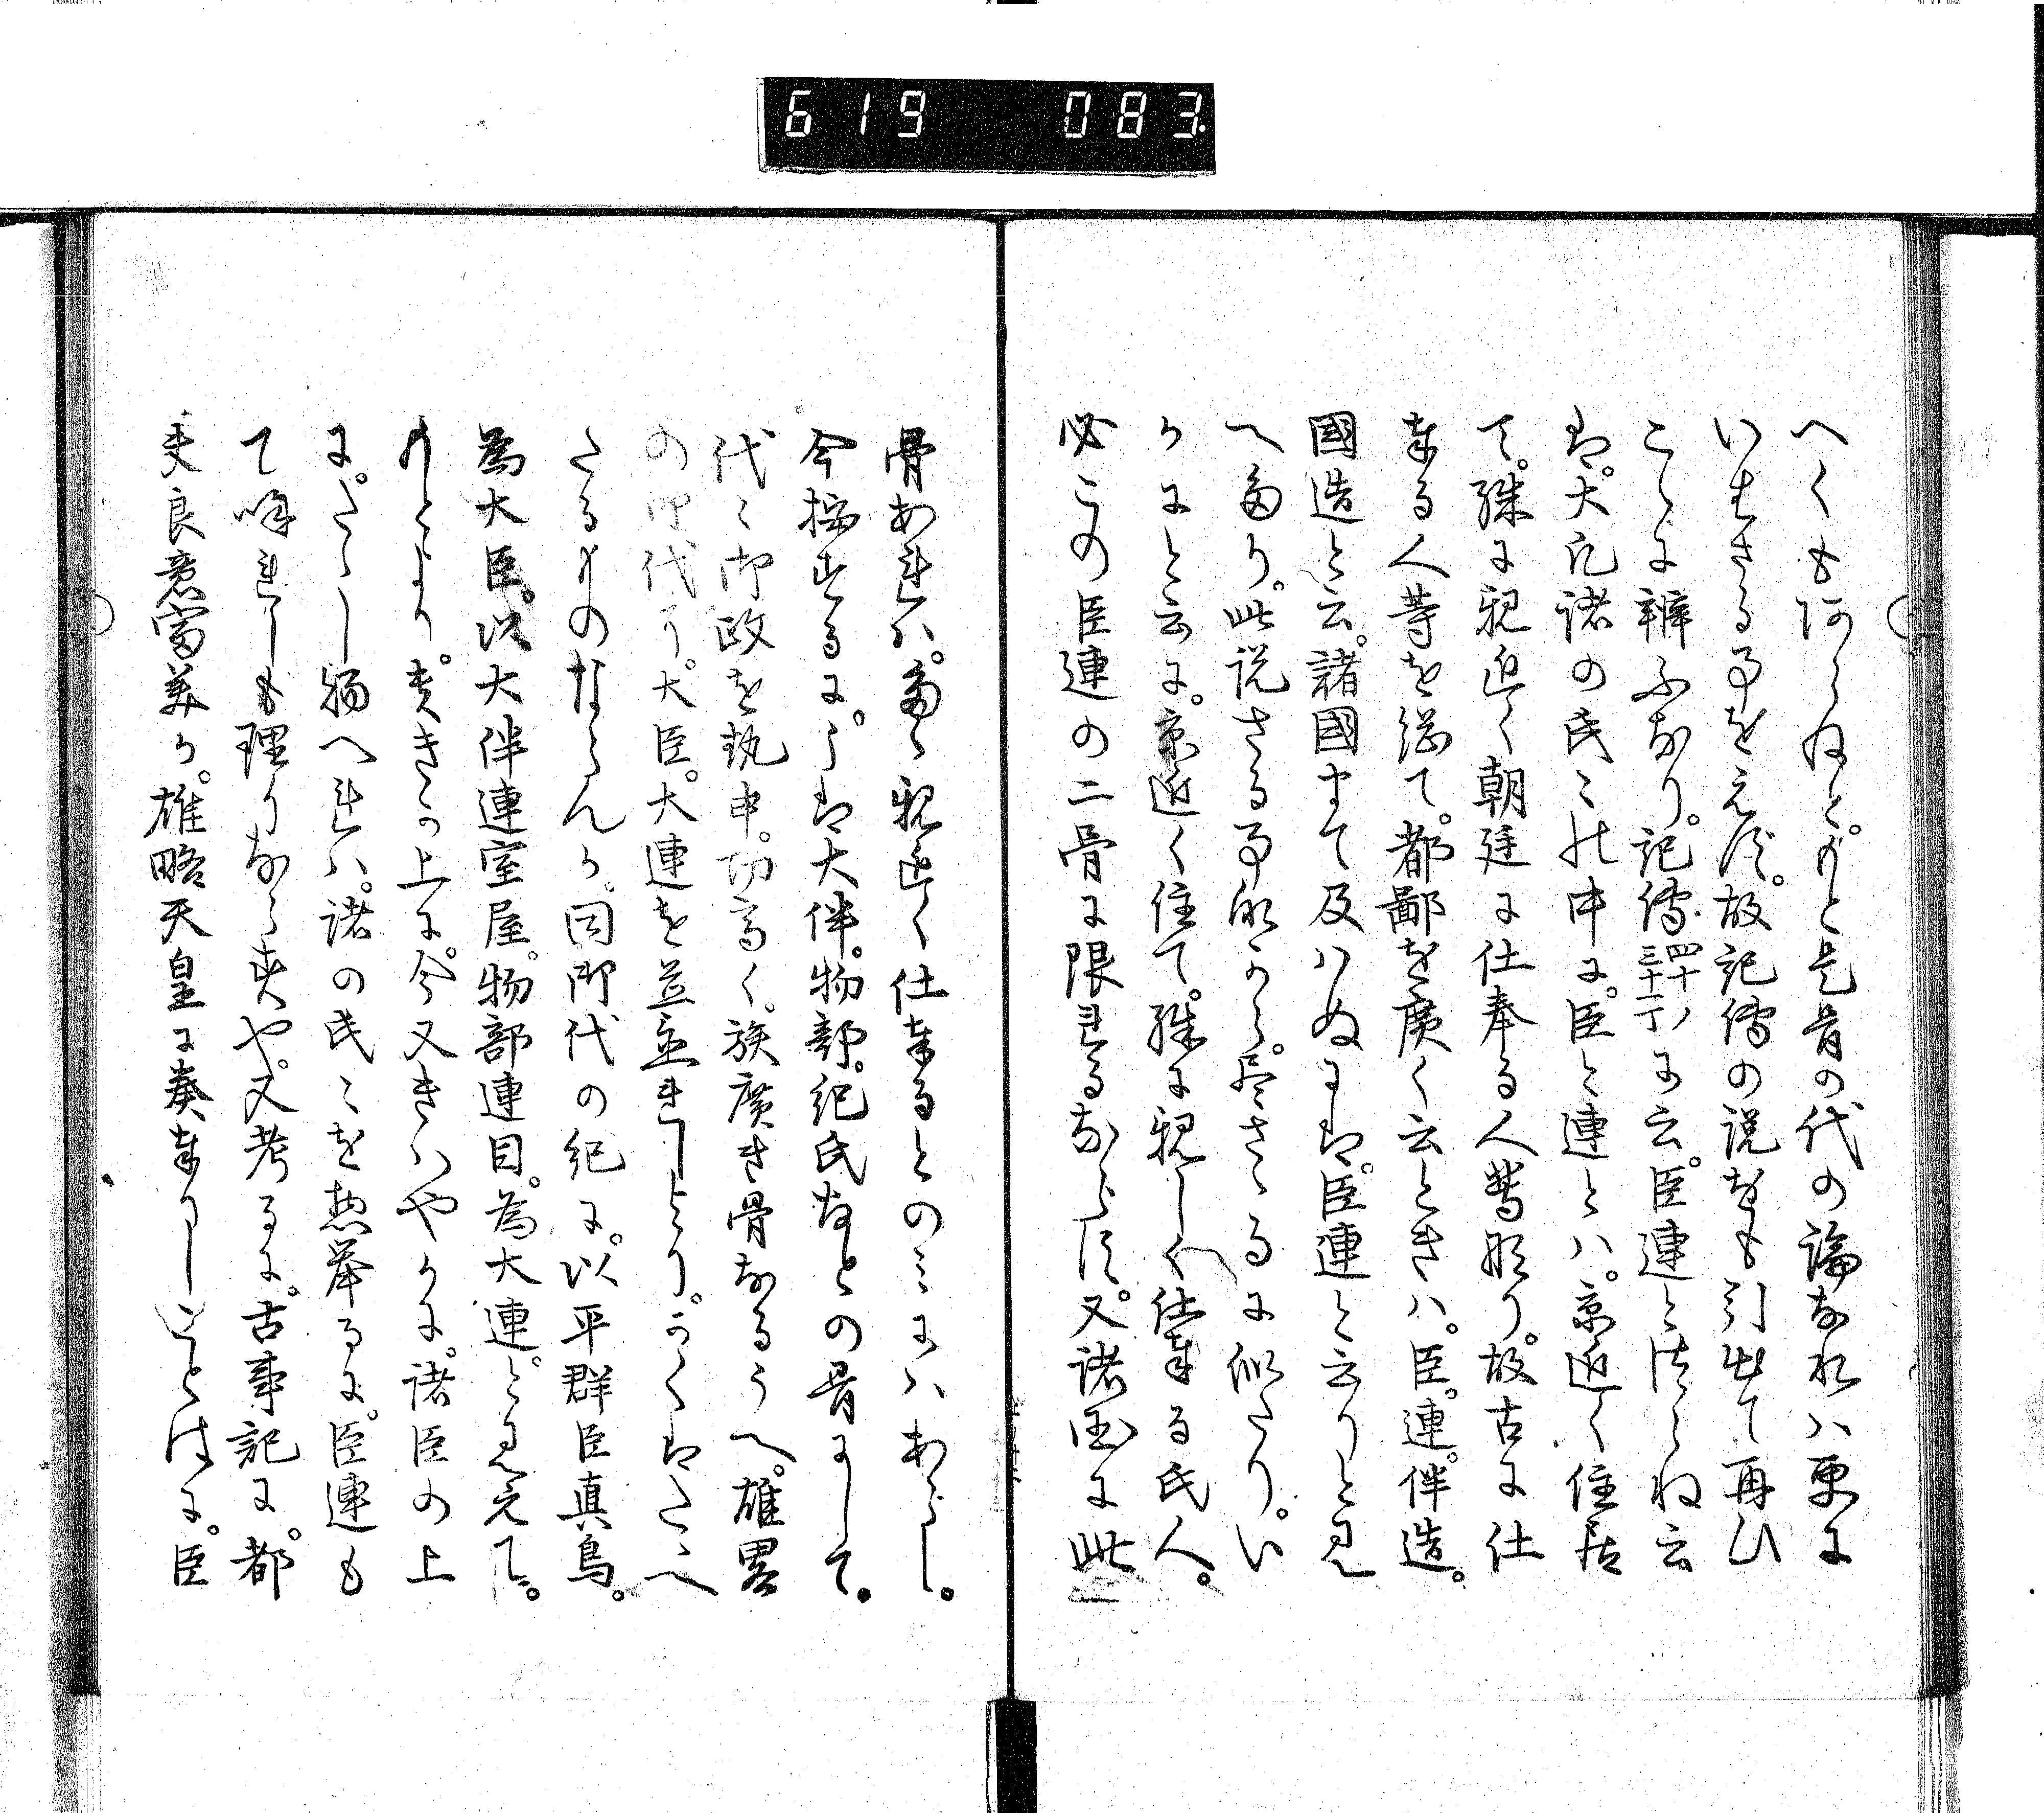 619 083
へくも阿らねと。もと是骨の代の論なれハ更に
いはさる事をえす。故記傳の説をも引出て再ひ
こゝに辨ふなり。記傳四十ノ三十丁に云。臣連とつらね云
は。大凡諸の氏々の中に。臣と連とハ。京近く住居
て。殊に親近く朝廷に仕奉る人等なり。故古に仕
奉る人等を總て。都鄙を廣く云ときハ。臣。連。伴造。
國造と云。諸國まて及ハぬには。臣連と云りと見
へたり。此説さる事なから。尽さゝるに似たり。い
かにと云に。京近く住て。殊に親しく仕奉る氏人。
必この臣連の二骨に限れるならす。又諸国に此
骨あれハ。たゝ親近く仕奉るとのミにハあらし。
今按するに。こは大伴。物部。紀氏なとの骨にして。
代々御政を執申。功高く。族廣き骨なるうへ。雄畧
の御代より。大臣。大連を並立れしより。かくはたゝへ
たるものならんか。同御代の紀に。以平群臣真鳥。
為大臣。以大伴連室屋。物部連目。為大連。と見えて。
もとより。貴きか上に。今又きハやかに。諸臣の上
に。たゝし物へれハ。諸の氏々を惣挙るに。臣連も
て唱れしも理りならすや。又考るに。古事記に。都
夫良意富美か。雄略天皇に奏奉りしことはに。臣